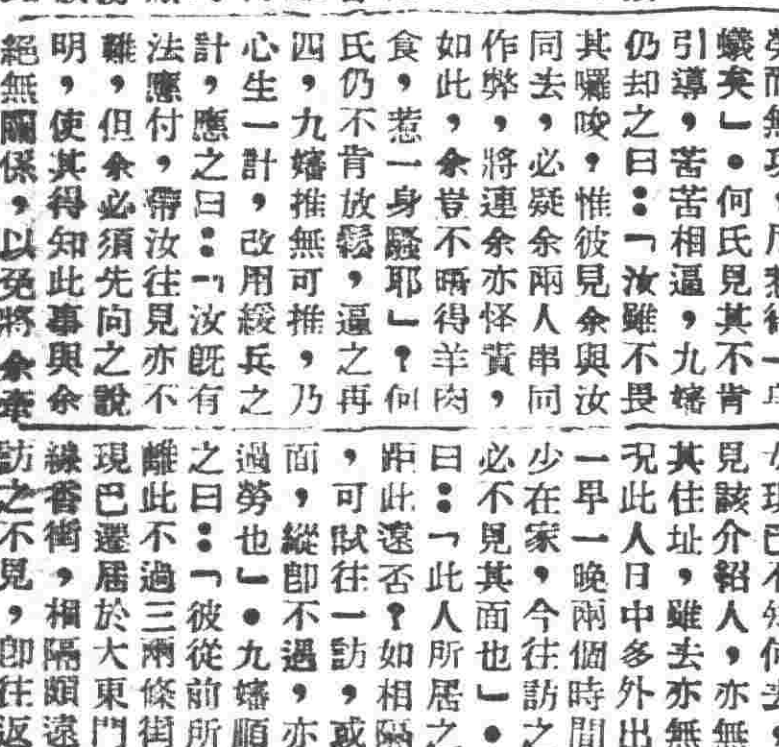 蟻矣」。何氏見其不肯
引導，苦苦相逼，九嬸
仍却之曰：「汝雖不畏
其囉唆，惟彼見余與汝
同去，必疑余兩人串同
作弊，將連余亦怪責，
如此，余豈不得羊肉
食，惹一身騷耶」？何
氏仍不肯放鬆，逼之再
四，九嬸推無可推，乃
心生一計，改用緩兵之
計，應之曰：「汝旣有
法應付，帶汝往見亦不
難，但余必須先向之說
明，使其得知此事與余
絕無關係，以免將余牽
見該介紹人，亦無
其住址，雖去亦無
况此人日中多外出
一早一晚兩個時間
少在家，今往訪之
必不見其面也」。
曰：「此人所居之
距此遠否？如相隔
，可試往一訪，或
面，縱卽不遇，亦
過勞也」。九嬸順
之曰：「彼從前所
離此不過三兩條街
現已遷居於大東門
線香街，相隔頗遠
訪之不見，卽往返